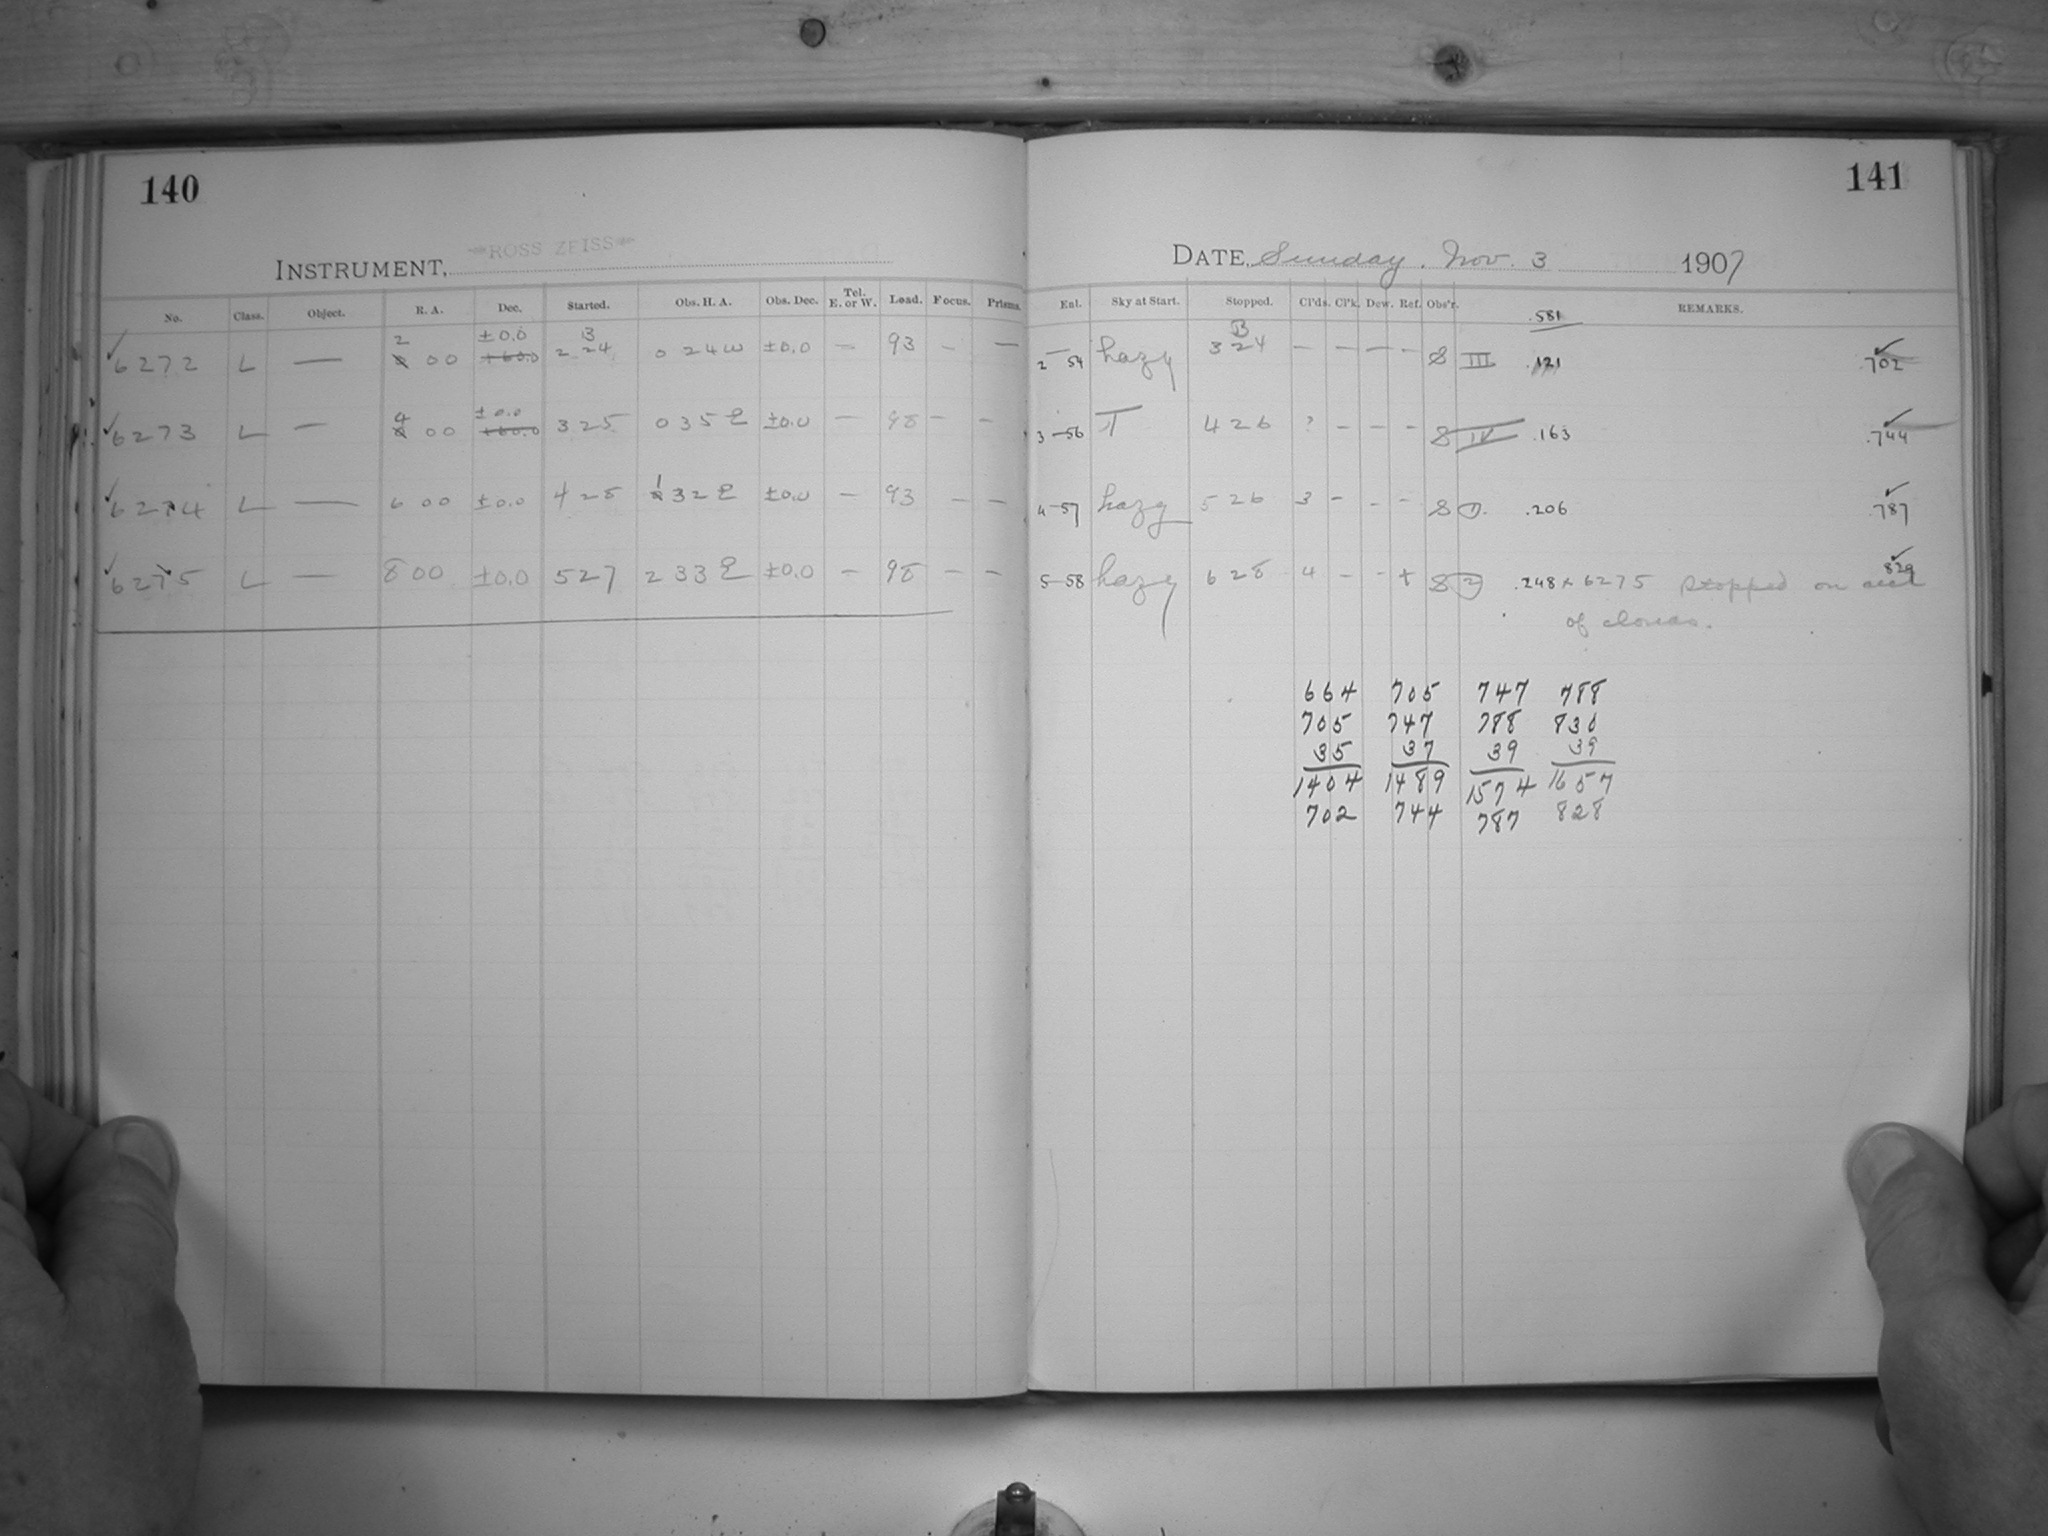 140
INSTRUMENT, ROSS ZEISS
No. Class. Object. R. A. Dec. Started. Obs. H. A. Obs. Dec. Tel. E. or W. Load. Focus. Prisms.
6272 L — 2 00 ±0.0 B 2 24 0 24 W ±0.0 — 93 - —
6273 L — 4 00 ±0.0 3 25 0 35 E ±0.0 — 98 - -
6274 L — 6 00 ±0.0 4 25 1 32 E ±0.0 — 93 - -
6275 L — 8 00 ±0.0 5 27 2 33 E ±0.0 — 98 - -
141
DATE, Sunday. Nov. 3 1907
Enl. Sky at Start. Stopped. Cl'ds. Cl'k. Dew. Ref. Obs'r. REMARKS.
.581
2-54 hazy B 3 24 - - - - S III .121 .702
3-56 T 4 26 ? - - - S IV .163 .744
4-57 hazy 5 26 3 - - - S 1 .206 .787
5-58 hazy 6 28 4 - - + S 2 .248 × 6275 Stopped on acct 829
of clouds.
664 705 747 788
705 747 788 830
35 37 39 39
1404 1489 1574 1657
702 744 787 828